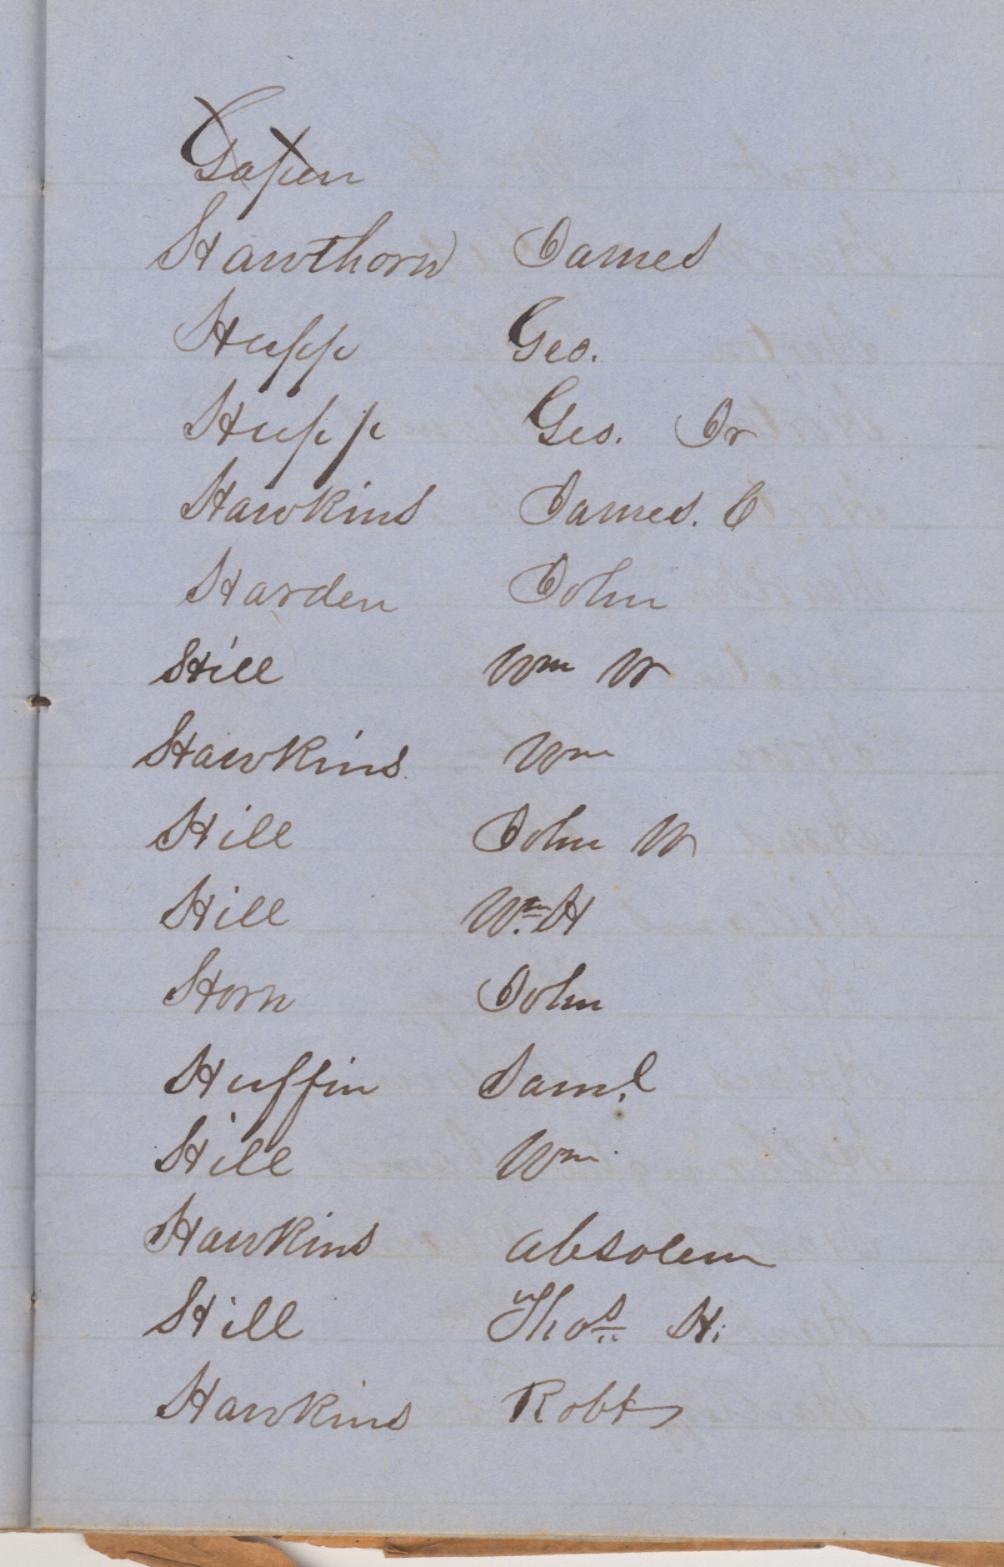 Hawthorn James
Hupp Geo.
Hupp Geo. Jr
Hawkins James. C
Harden John
Hill Wm W
Hawkins Wm
Hill John W
Hill Wm. H
Horn John
Huffin Saml.
Hill Wm
Hawkins Absolem
Hill Thos. H.
Hawkins Robt